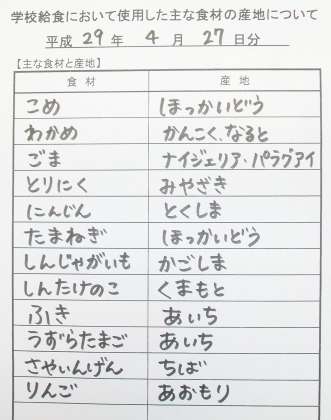 学校給食において使用した主な食材の産地について
平成 29 年 4 月 27 日分
【主な食材と産地】
食材 産地
こめ ほっかいどう
わかめ かんこく、なると
ごま ナイジェリア・パラグアイ
とりにく みやざき
にんじん とくしま
たまねぎ ほっかいどう
しんじゃがいも かごしま
しんたけのこ くまもと
ふき あいち
うずらたまご あいち
さやいんげん ちば
りんご あおもり